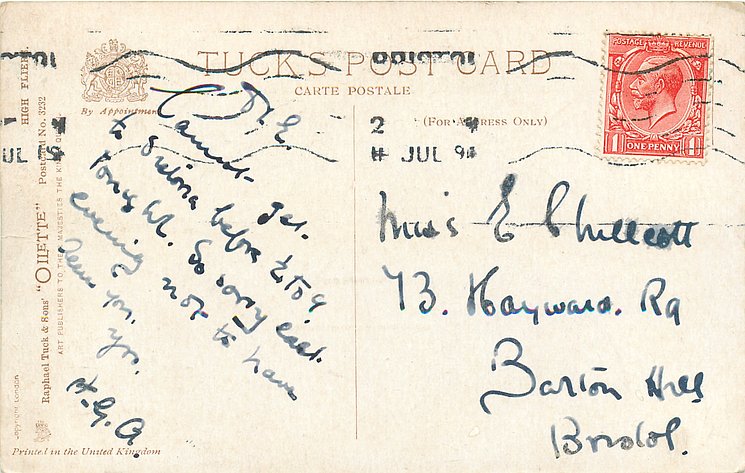 BRISTOL
TUCK'S POST CARD
CARTE POSTALE
By Appointment
(FOR ADDRESS ONLY)
HIGH FLIERS.
Postcard No. 3232
Raphael Tuck & Sons' "OILETTE"
ART PUBLISHERS TO THEIR MAJESTIES THE KING
Printed in the United Kingdom
POSTAGE REVENUE
1 ONE PENNY 1
JUL
Cannot get
to before
So sorry
evening not to have
seen you.
Yrs.
Miss E Chillcott
73. Hayward. Rd
Barton Hill
Bristol.